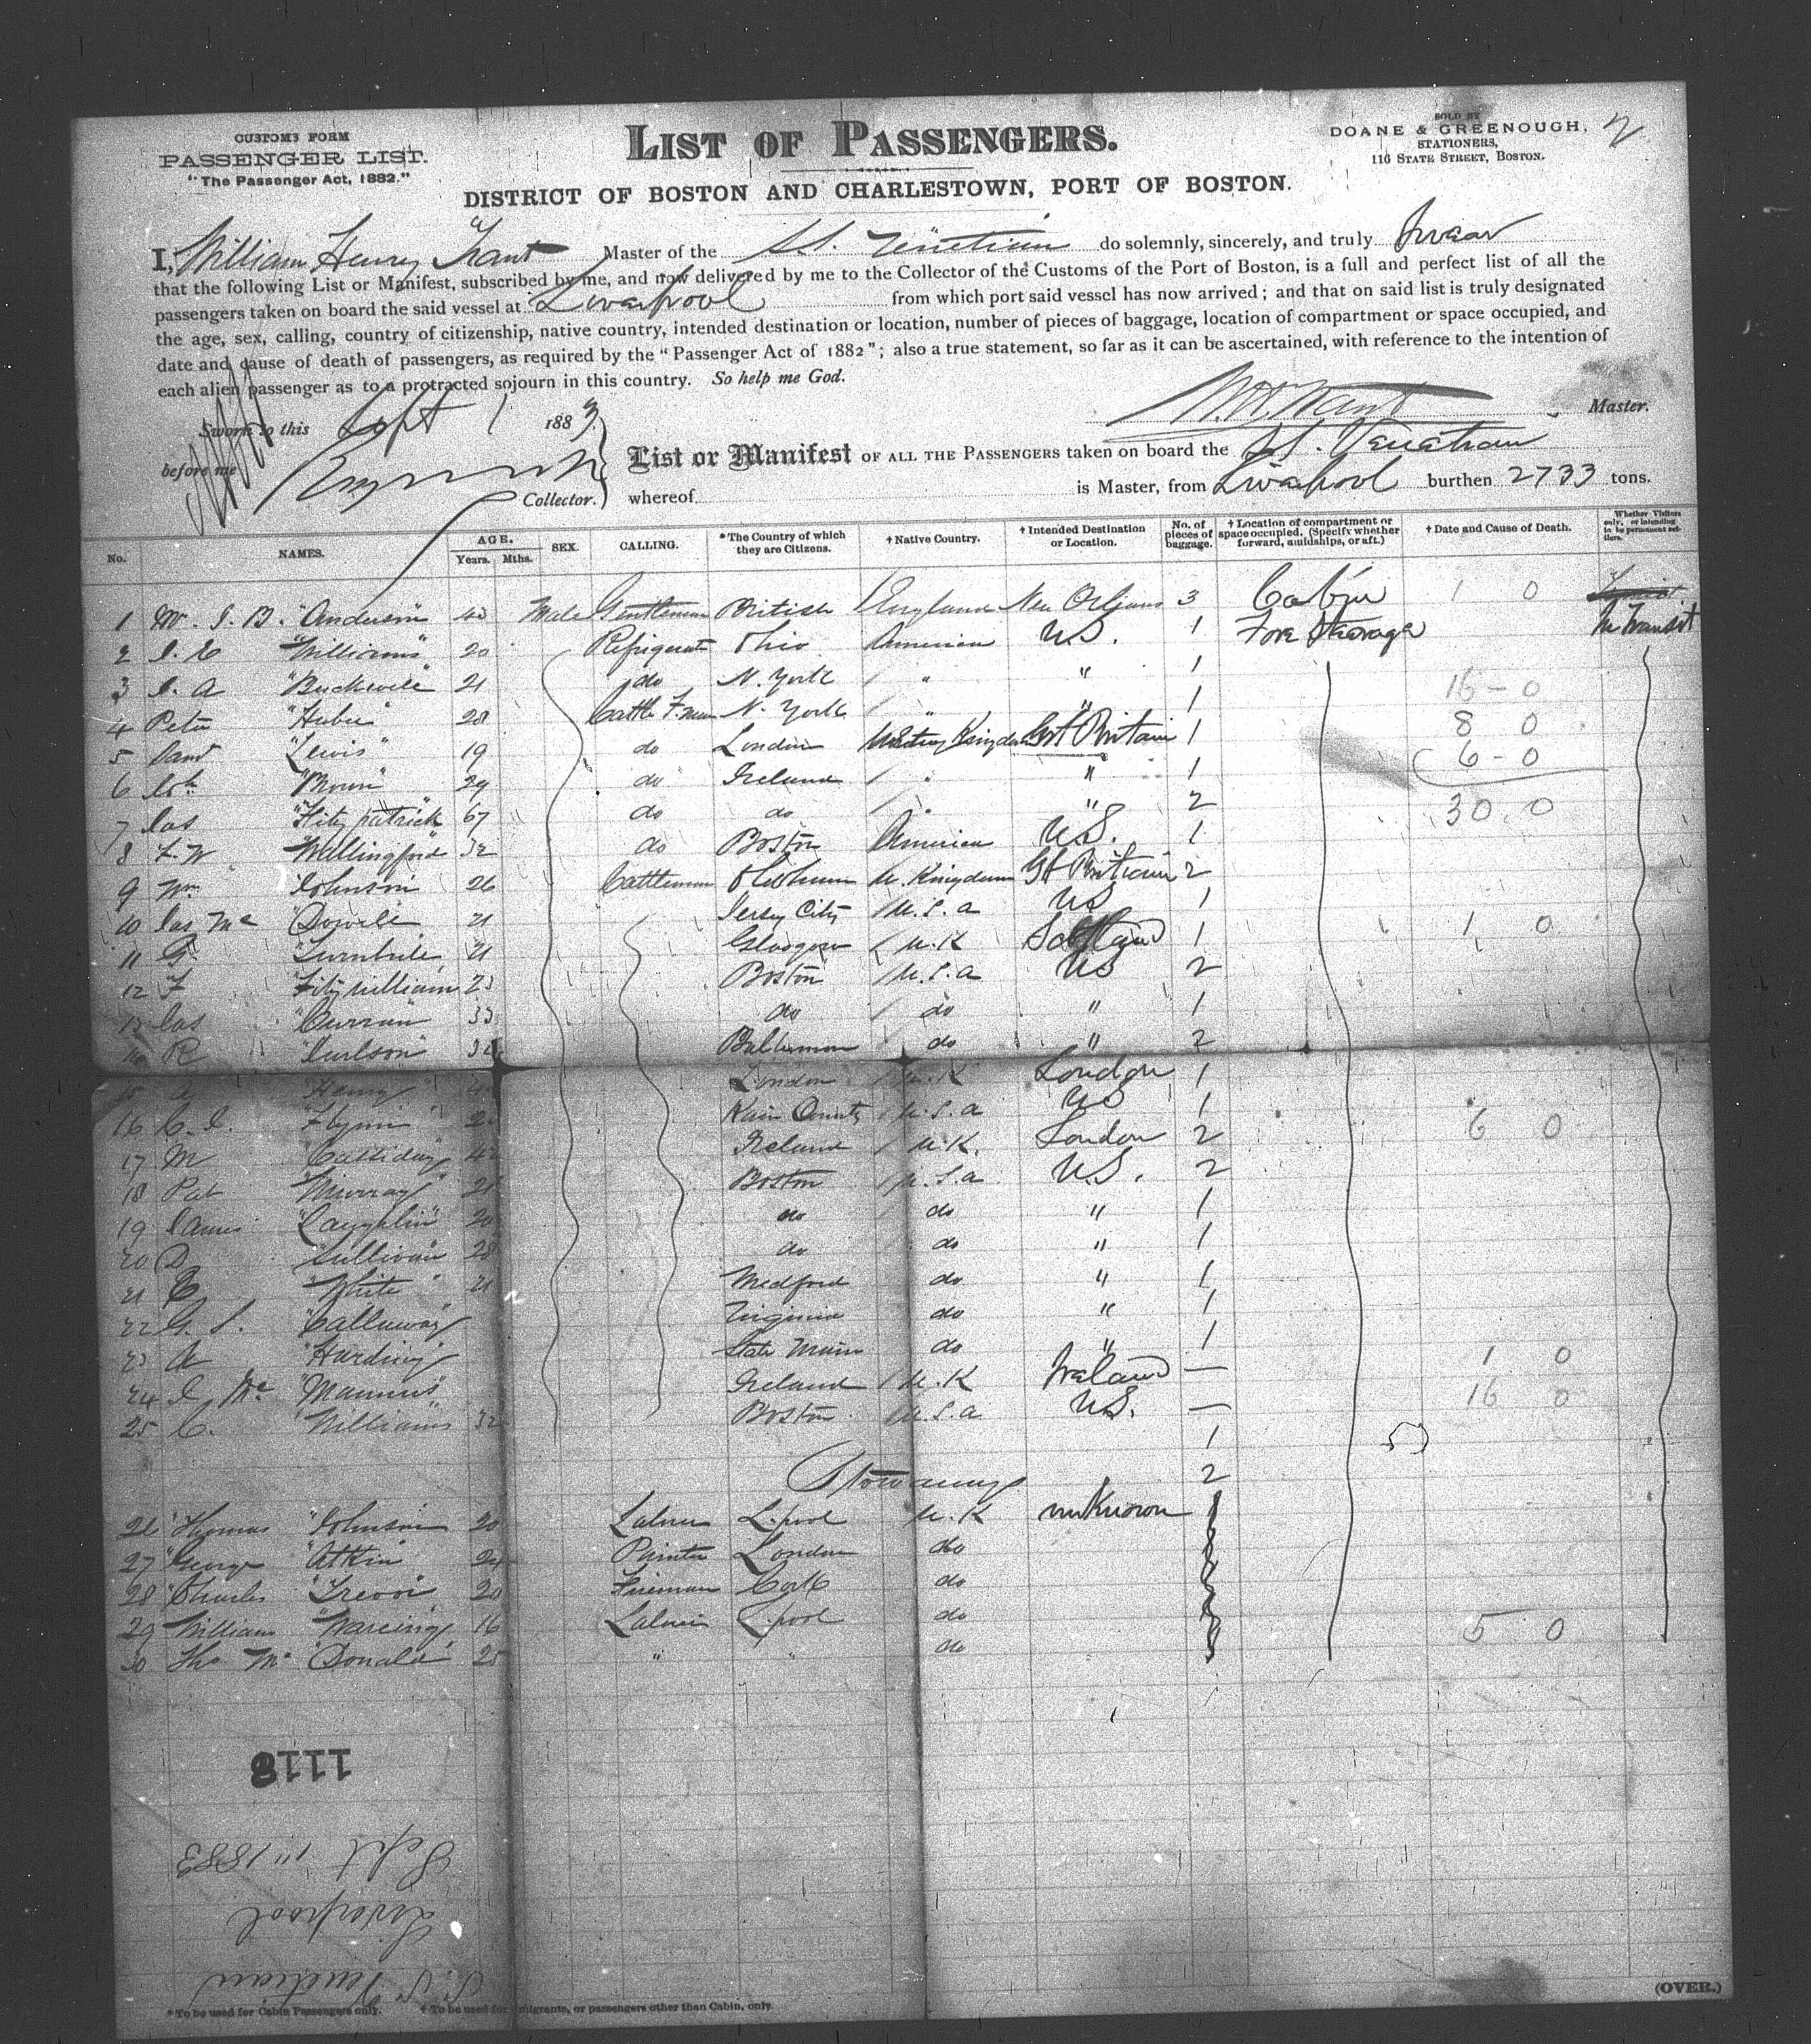 CUSTOMS FORM
PASSENGER LIST.
"The Passenger Act, 1882."
LIST OF PASSENGERS.
SOLD BY
DOANE & GREENOUGH,
STATIONERS,
116 STATE STREET, BOSTON.
2
DISTRICT OF BOSTON AND CHARLESTOWN, PORT OF BOSTON.
I, William Henry Trant Master of the SS. Venetian do solemnly, sincerely, and truly Swear
that the following List or Manifest, subscribed by me, and now delivered by me to the Collector of the Customs of the Port of Boston, is a full and perfect list of all the
passengers taken on board the said vessel at Liverpool from which port said vessel has now arrived; and that on said list is truly designated
the age, sex, calling, country of citizenship, native country, intended destination or location, number of pieces of baggage, location of compartment or space occupied, and
date and cause of death of passengers, as required by the "Passenger Act of 1882"; also a true statement, so far as it can be ascertained, with reference to the intention of
each alien passenger as to a protracted sojourn in this country. So help me God.
Master.
Sworn to this Sept 1 1883
before me
Collector.
List or Manifest OF ALL THE PASSENGERS taken on board the SS. Venetian
whereof is Master, from Liverpool burthen 2733 tons.
No. NAMES. AGE. Years. Mths. SEX. CALLING. *The Country of which they are Citizens. †Native Country. †Intended Destination or Location. No. of pieces of baggage. †Location of compartment or space occupied. (Specify whether forward, amidships, or aft.) †Date and Cause of Death. Whether Visitors only, or intending to be permanent settlers.
1 Mr. J. B. "Anderson" 40 Male Gentleman British England New Orleans 3 Cabin 1 0 In Transit
2 J. E "Williams" 20 Refrigerat Ohio American U.S. 1 Fore Steerage
3 J. A "Buckwell" 21 do N. York " " 1 16 - 0
4 Peter "Huber" 28 Cattle F. man N. York " " 1 8 0
5 Saml "Lewis" 19 do London Kingdom Grt Britain 1 6 - 0
6 "Brown" 29 do Ireland " " 1
7 Jas "Fitzpatrick 67 do do " " 2 30.0
8 F. W "Wallingford" 32 do Boston American U.S. 1
9 Wm "Johnson" 26 Cattleman Oldham U. Kingdom Gt Britain 2
10 Jas Mc "Dowell 21 Jersey City U.S.a US 1
11 G. "Turnbull" 21 Glasgow U.K Scotland 1 1 0
12 F "Fitzwilliam 23 Boston U.S.a US 2
13 Jas "Curran" 33 do do " 1
14 R "Carlson" 32 Baltimore do " 2
15 A "Henry" London U.K London 1
16 C. J. "Flynn" Kain County U.S.a US 1
17 M "Calliday 42 Ireland U.K. London 2 6 0
18 Pat "Murray" 21 Boston U.S.a U.S. 2
19 James "Laughlin" 20 do do " 1
20 D Sullivan 28 do do " 1
21 E "White" 21 Medford do " 1
22 G. S. "Calluway" Virginia do " 1
23 A "Harding" State Main do " 1 1 0
24 J Mc "Mannus" Ireland U.K Ireland — 16 0
25 C. "Williams 32 Boston U.S.a U.S. —
1
2
26 "Thomas "Johnson 20 Laborer L.pool U.K unknown
27 "George "Atkin" 24 Painter London do
28 "Charles "Trevor" 20 Fireman Cork do
29 William "Wareing 16 Laborer L.pool do 5 0
30 Thos Mc "Donald" 25 " " do
1118
Sept 1" 1883
Liverpool
S.S. Venetian
*To be used for Cabin Passengers only. †To be used for emigrants, or passengers other than Cabin, only.
(OVER.)